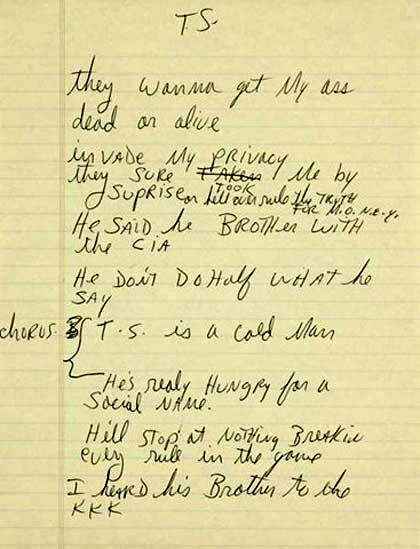 T.S.
they wanna get My ass
dead or alive
invade My privacy
they SURE TAKEN TOOK Me by
SUPRISE or he'll over rule the TRUTH
FOR M.O.N.E.Y.
He SAID he BROTHer WITH
the CIA
He Don't Do Half what he
SAY
chorus T.S. is a cold Man
He's realy Hungry for a
Social Name.
He'll stop at nothing Breakin
every rule in the game
I heard his Brother to the
KKK